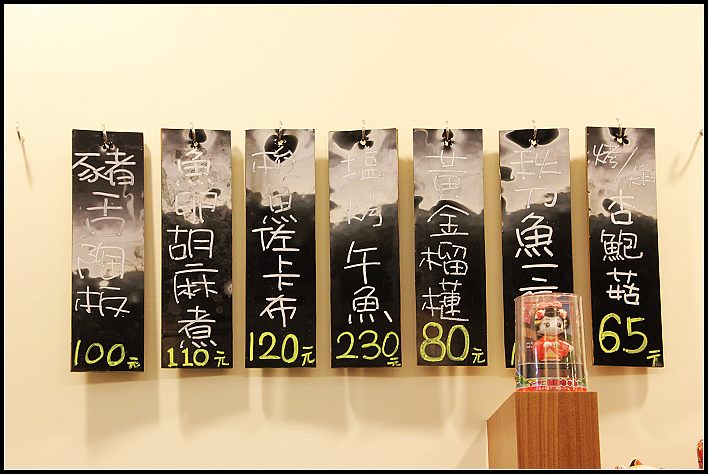 豬舌陶板
100元
魚卵胡麻煮
110元
魚佐卡布
120元
塩烤午魚
230元
黃金榴槤
80元
秋刀魚三
烤/炸杏鮑菇
65元